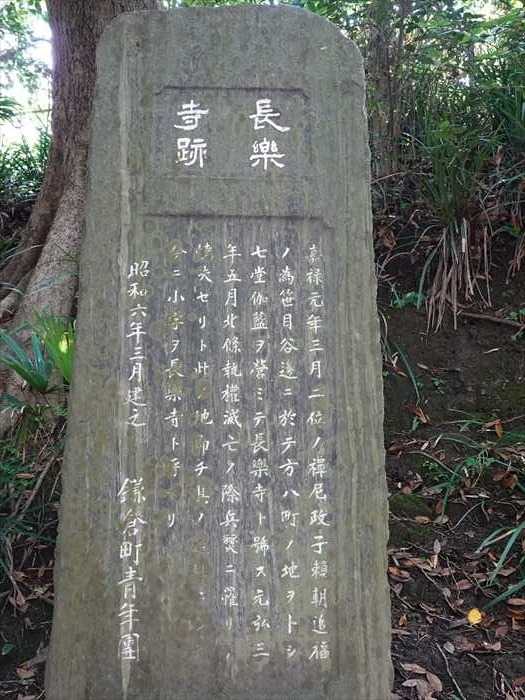 長樂
寺跡
嘉禄元年三月二位ノ禪尼政子賴朝追福
ノ為笹目谷邊ニ於テ方八町ノ地ヲトシ
七堂伽藍ヲ營ミテ長樂寺ト號ス元弘三
年五月北條執權滅亡ノ際兵燹ニ罹リ
燒失セリト此ノ地即チ其ノ
今ニ小字ヲ長樂寺ト呼ヘリ
昭和六年三月建之 鎌倉町青年團